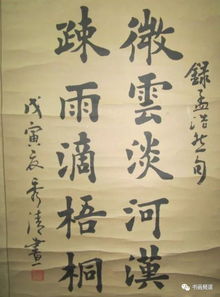 錄孟浩然句
微雲淡河漢
疎雨滴梧桐
戊寅夏秀清書
书画频道